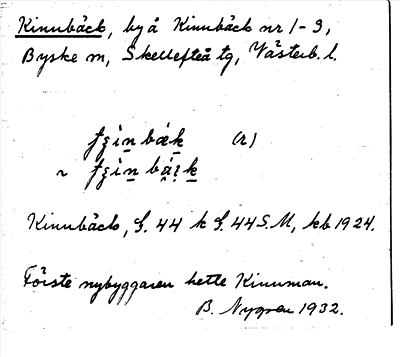 Kinnbäck, by å Kinnbäck nr 1-3,
Byske sn, Skellefteå tg, Västerb. l.
(r)
~
Kinnbäck, S. 44 k S. 44 S.M, kb 1924.
Förste nybyggaren hette Kinnman.
B. Nygren 1932.